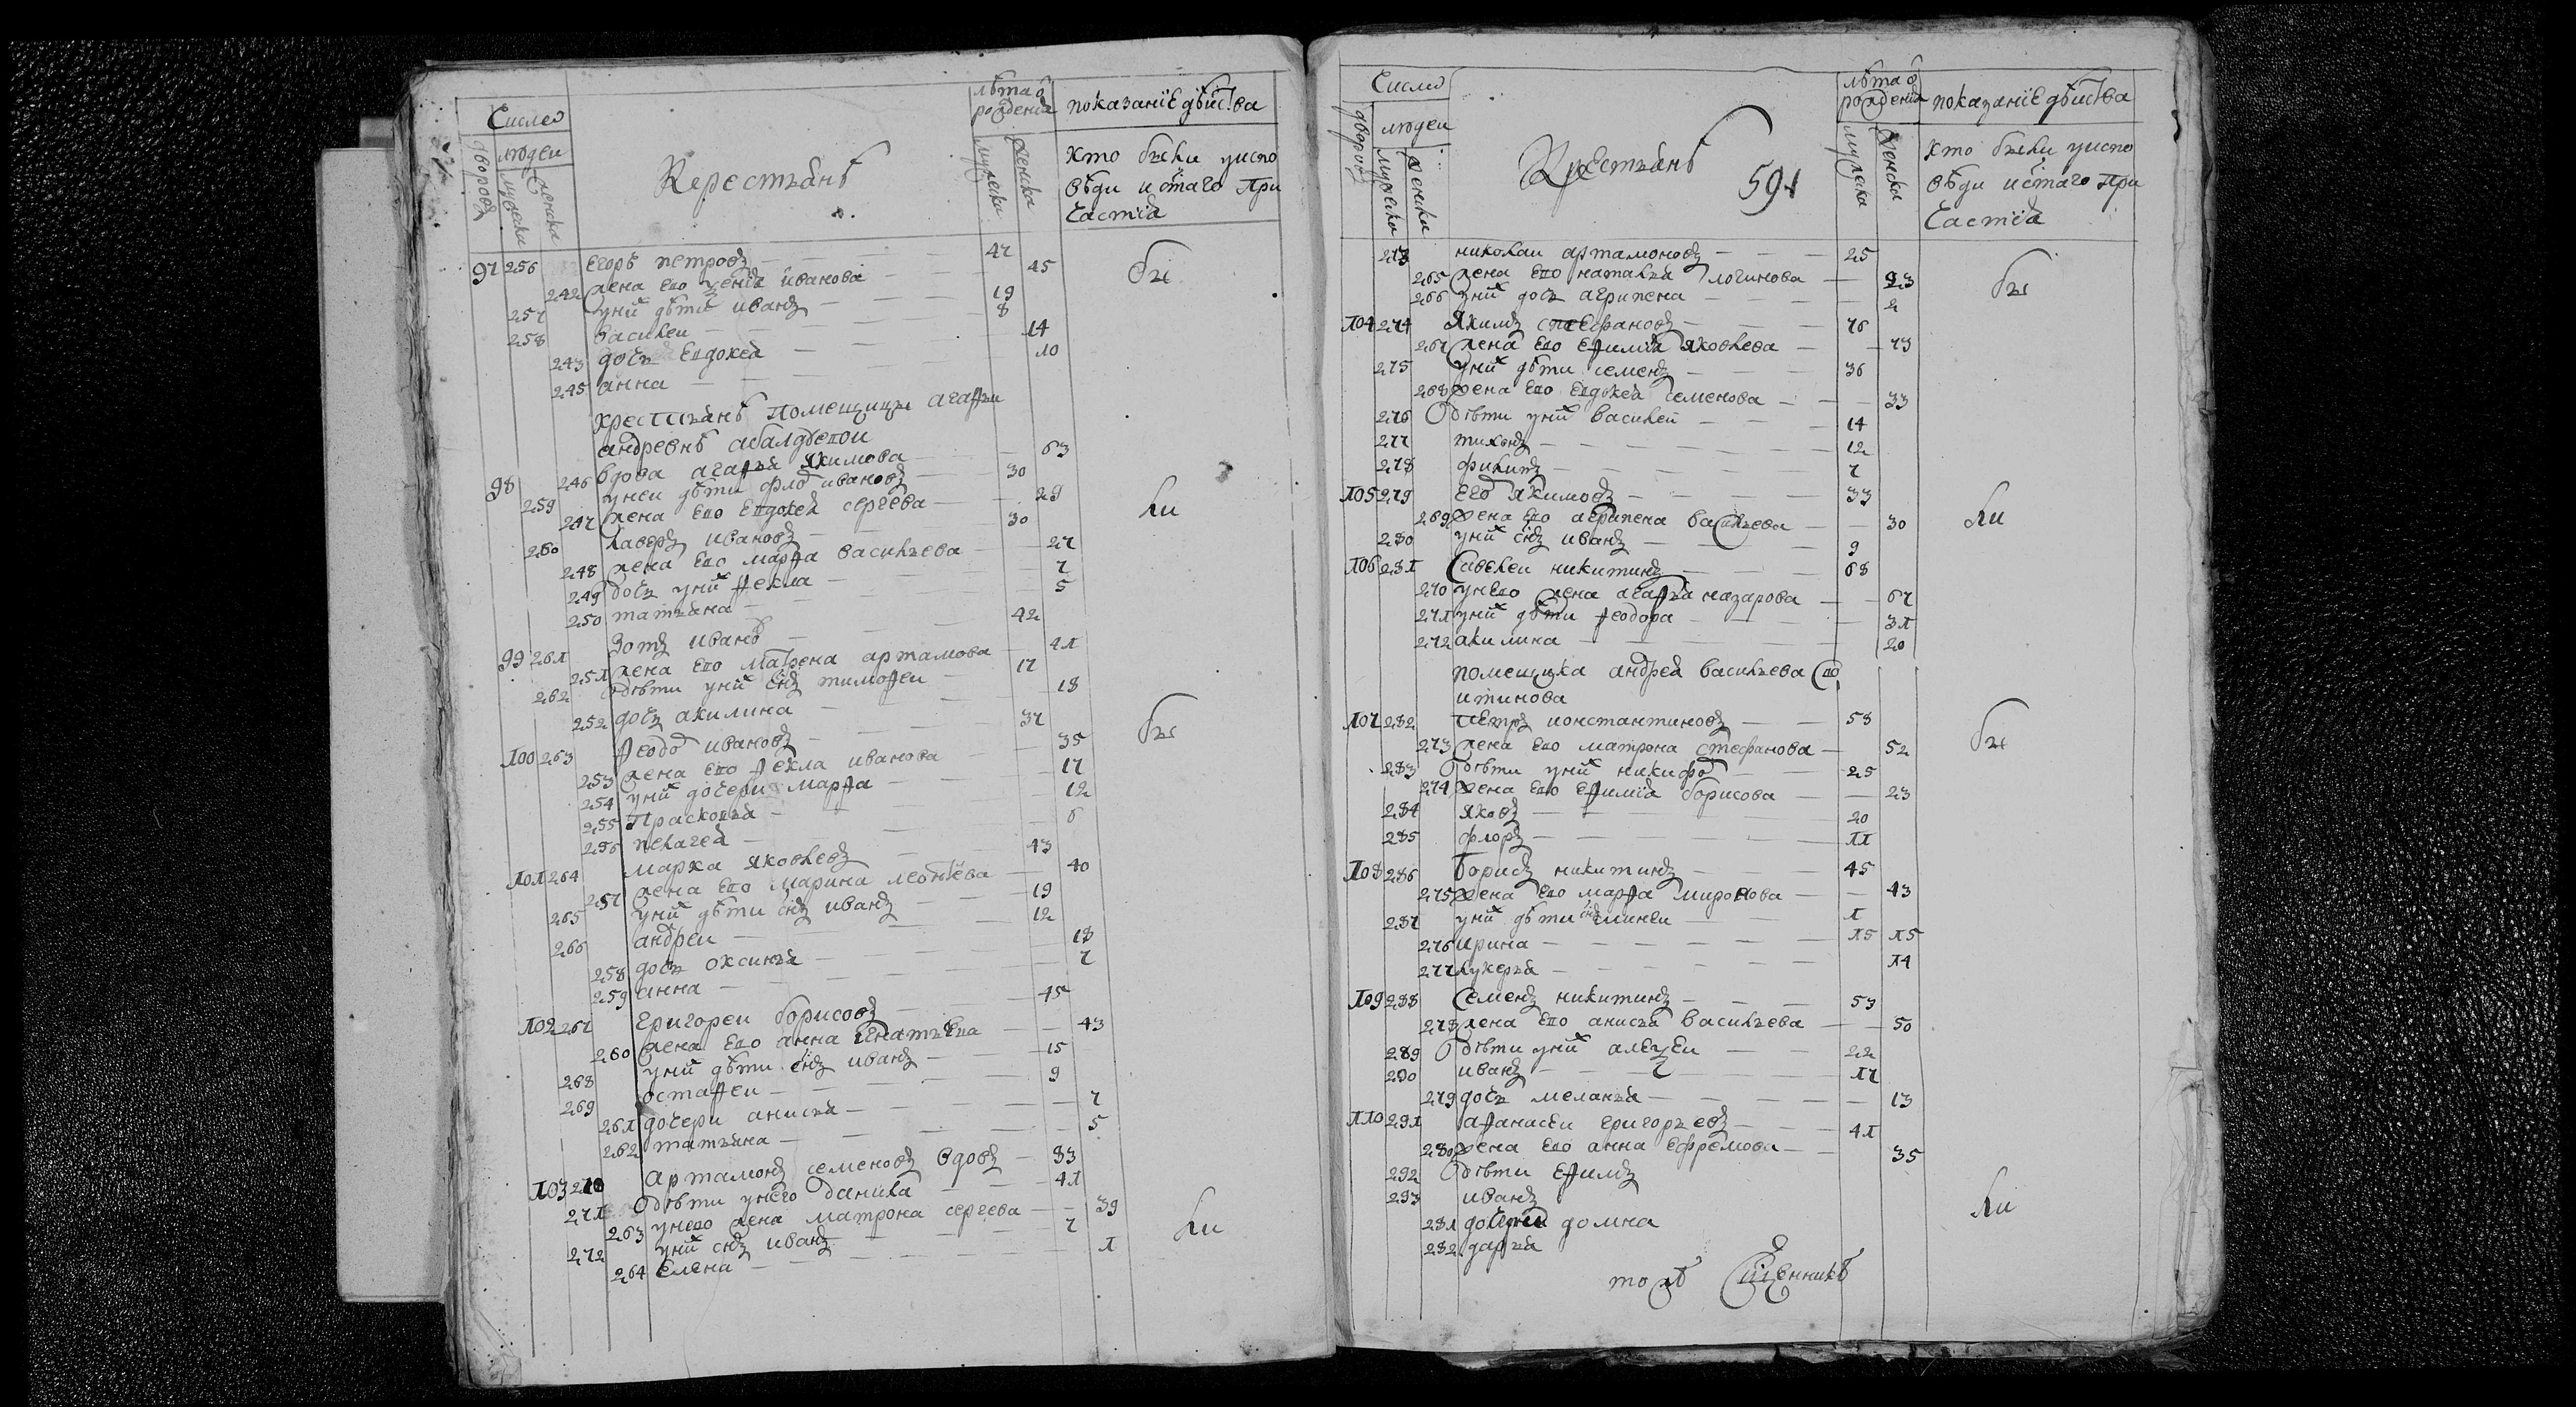 Число
дворовъ
людеи
мужеска
женска
Керестьянѣ
лѣта ѿ
рождениѧ
мужеска
женска
показаниЕ дѣиства
Кто были уиспо
вѣди истаго При
Частиѧ
97 256 Егоръ петровъ — 47
242 жена Ево ѯениѧ иванова — 45
257 унихъ дѣти иванъ — 19
258 василеи — 8
243 дочь Евдокеѧ — 14
245 анна — 10
бы
крестьянѣ Помещицы агаѳьи
андревнѣ абалдуевои
98 246 вдова агаѳьѧ Якимова — 63
259 унеи дѣти флоръ ивановъ — 30
247 жена Ево Евдокеѧ сергева — 29
260 лаверъ ивановъ — 30
248 жена Ево марѳа васильева — 27
249 дочь унихъ ѳекла — 7
250 татьѧна — 5
ли
99 261 Зотъ иванѣ — 42
251 жена Ево матрена артамова — 41
262 дѣти унихъ сынъ тимоѳеи — 17
252 дочь акилина — 18
100 263 ѳеодоръ ивановъ — 37
253 жена Ево ѳекла иванова — 35
254 унихъ дочери марѳа — 17
255 Прасковьѧ — 12
256 пелагеѧ — 6
бы
101 264 марка Яковлевъ — 43
257 жена Ево марина леонтева — 40
265 унихъ дѣти сынъ иванъ — 19
266 андреи — 12
258 дочь оксиньѧ — 18
259 анна — 7
102 267 григореи борисовъ — 45
260 жена Ево анна Игнатьева — 43
268 унихъ дѣти сынъ иванъ — 15
269 остаѳеи — 9
261 дочери анисьѧ — 7
262 татьѧна — 5
103 270 Артамонъ семеновъ вдовъ — 83
271 дѣти унего данила — 41
263 унево жена матрона сергева — 39
272 унихъ сынъ иванъ — 7
264 Елена — 1
ли
Число
дворовъ
людеи
мужеска
женска
Крестьянѣ
591
лѣта ѿ
рождениѧ
мужеска
женска
показаниЕ дѣиства
Кто были уиспо
вѣди истаго При
Частиѧ
273 николаи артамоновъ — 25
265 жена Ево натальѧ логинова — 23
266 унихъ дочь агрипена — 2
бы
104 274 Якимъ стеѳановъ — 76
267 жена Ево Еѳимиѧ Яковлева — 73
275 унихъ дѣти семенъ — 36
268 жена Ево Евдокеѧ семенова — 33
276 дѣти унихъ василеи — 14
277 тихонъ — 12
278 филипъ — 7
105 279 Егоръ Якимовъ — 33
269 жена Ево агрипена васильева — 30
280 унихъ сынъ иванъ — 9
ли
106 281 Савелеи никитинъ — 68
270 унево жена агаѳьѧ назарова — 67
271 унихъ дѣти ѳеодора — 31
272 акилина — 20
помещика андреѧ васильева
107 282 Петръ константиновъ — 58
273 жена Ево матрона стефанова — 52
283 дѣти унихъ никифоръ — 25
274 жена Ево Еѳимиѧ борисова — 23
284 Яковъ — 20
285 флоръ — 11
бы
108 286 Борисъ никитинъ — 45
275 жена Ево марѳа миронова — 43
287 унихъ дѣти сынъ минеи — 1
276 ирина — 15 15
277 лукерьѧ — 14
109 288 Семенъ никитинъ — 53
278 жена Ево анисьѧ васильева — 50
289 дѣти унихъ алеѯеи — 22
290 иванъ — 17
279 дочь меланьѧ — 13
110 291 аѳанасеи григорьевъ — 41
280 жена Ево анна Ефремова — 35
292 дѣти Еѳимъ
293 иванъ
281 дочери домна
282 дарьѧ
ли
тожъ Сщенникъ